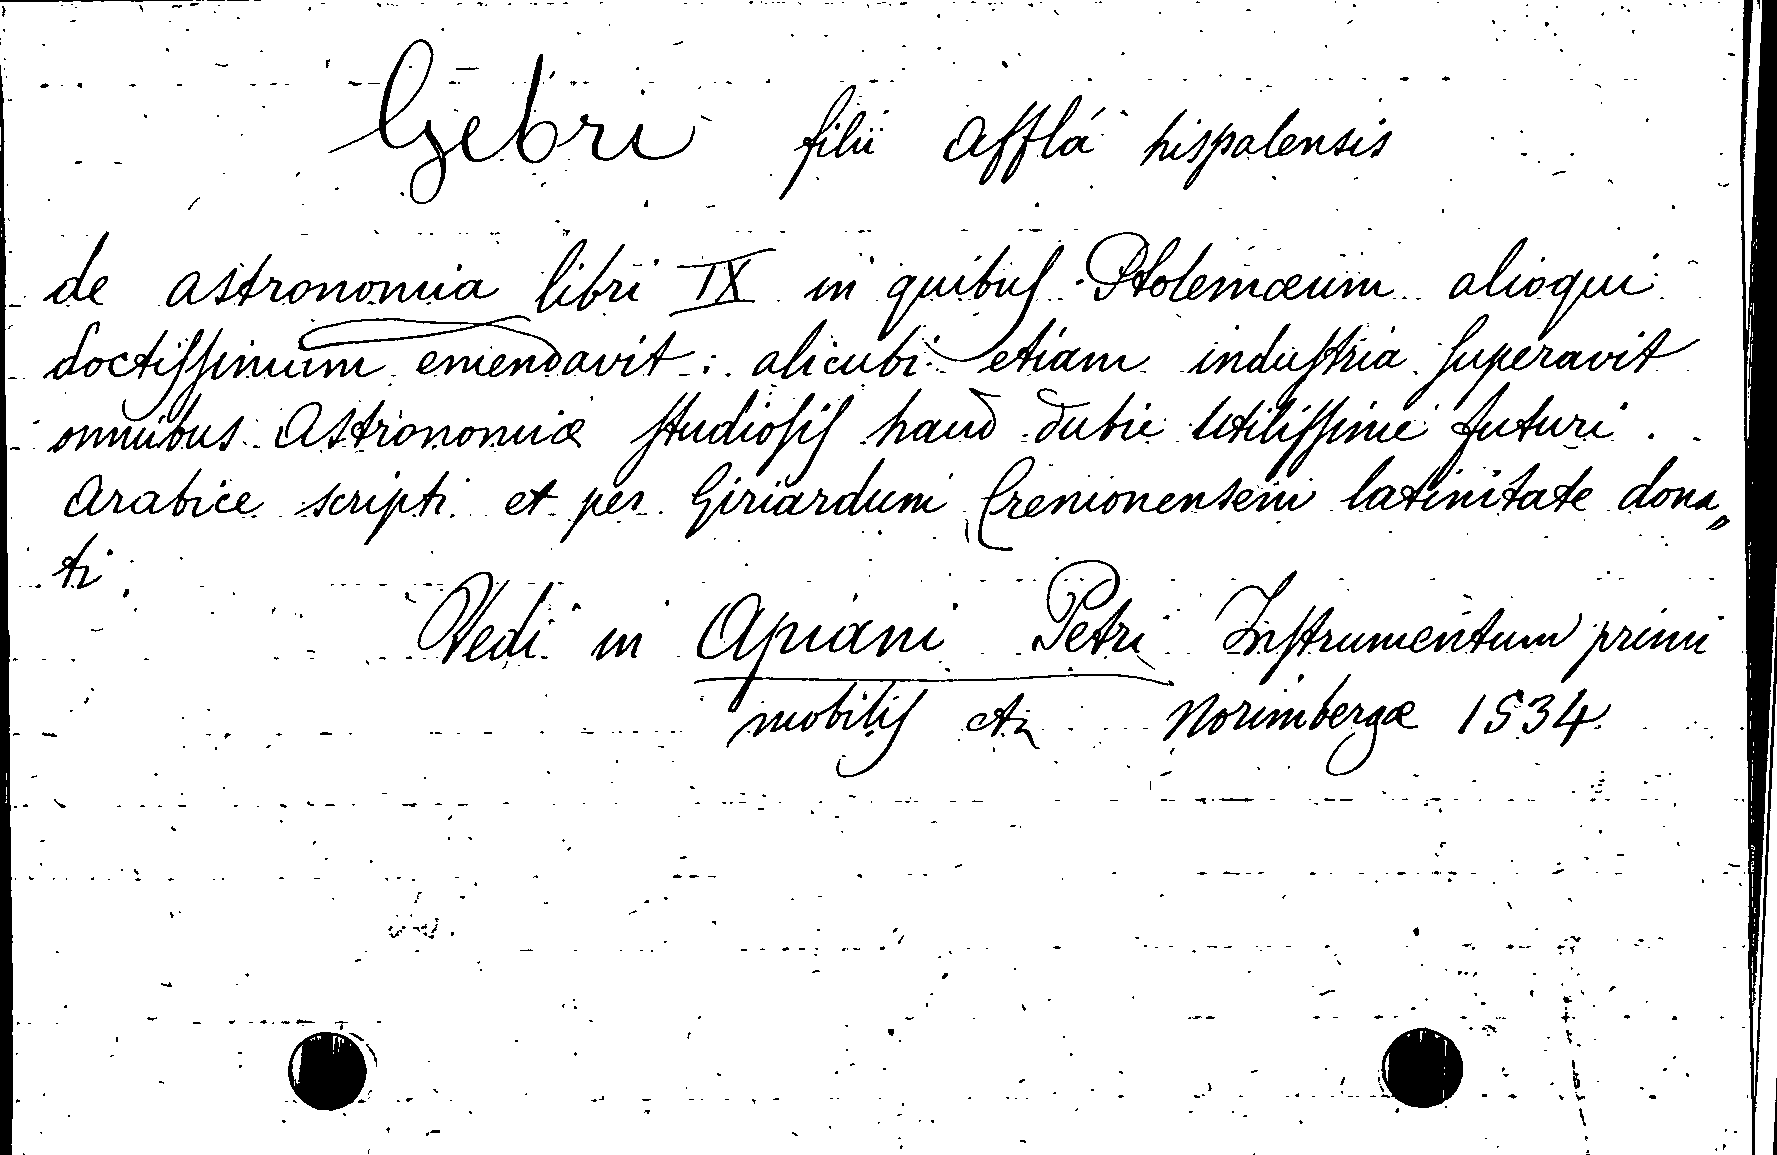 Gebri filii Afflá hispalensis
de astronomia libri IX in quibus Ptolemæum alioqui
doctissimum emendavit : alicubi etiam industria superavit
omnibus Astronomiæ studiosis haud dubie utilissimi futuri .
Arabice scripti et per Giriardum Cremonensem latinitate dona„
ti .
Vedi in Apiani Petri Instrumentum primi
mobilis etc Norimbergæ 1534.